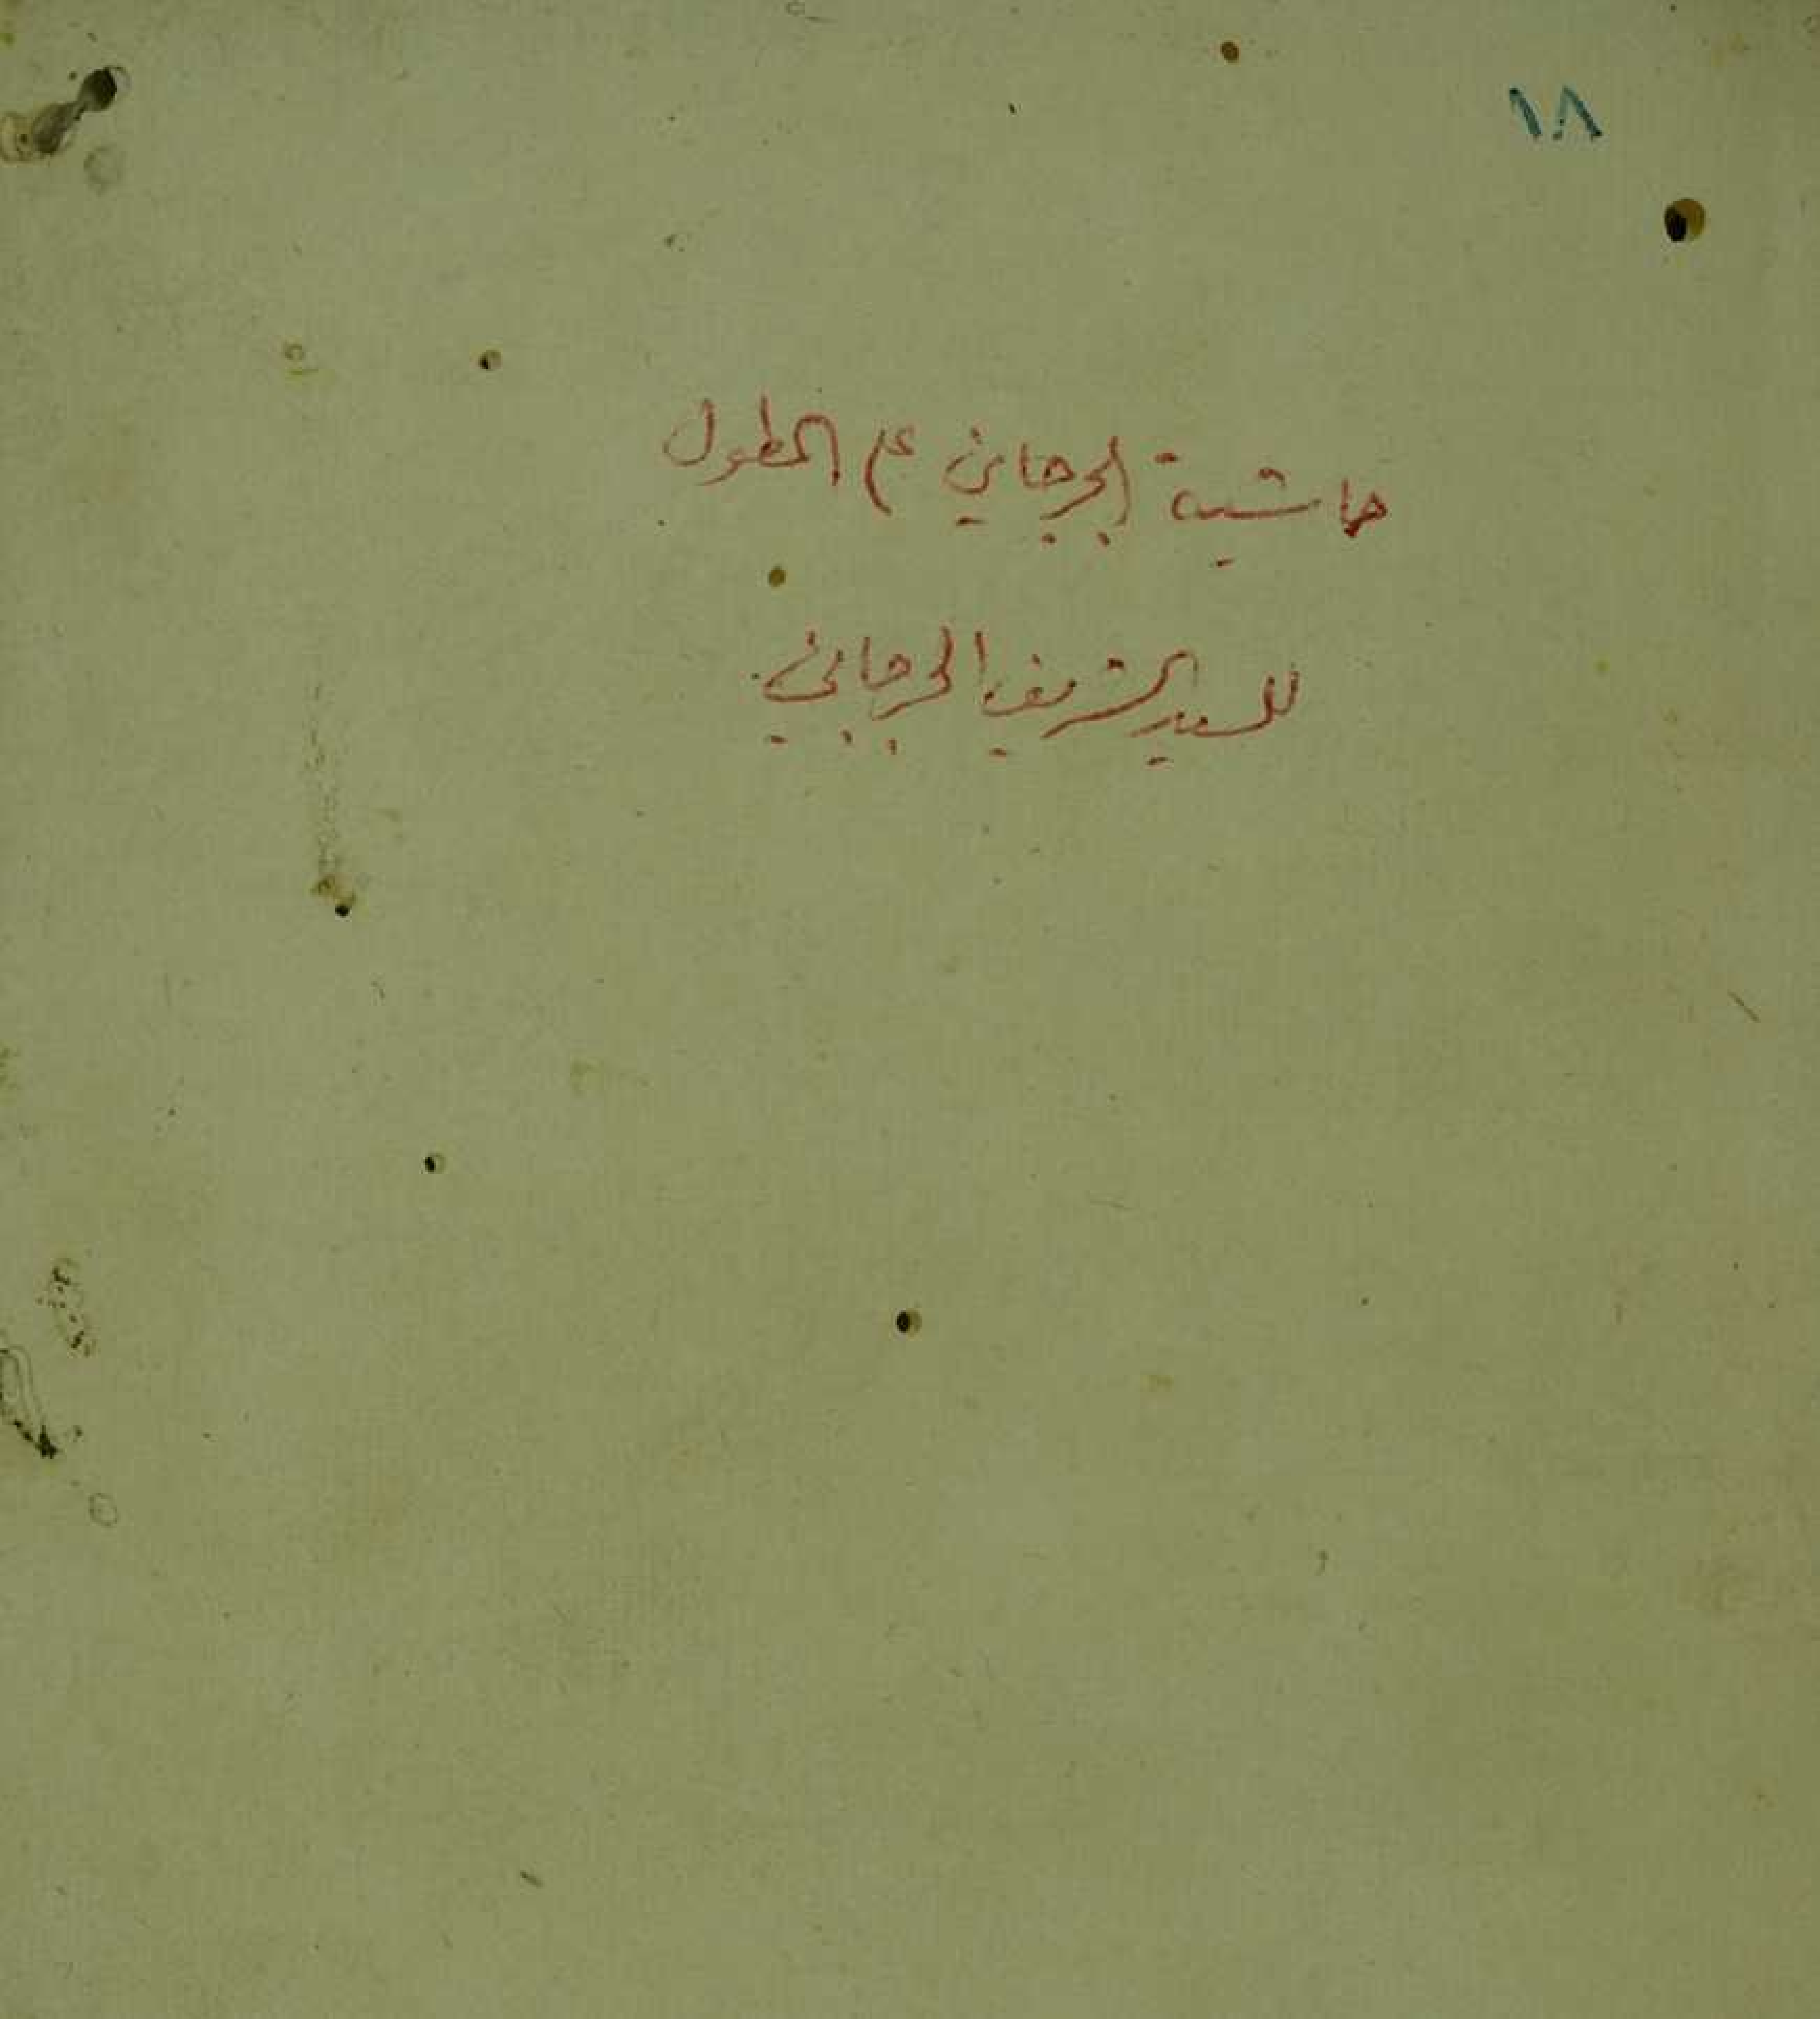 ١٨
حاشية الجرجاني على المطول
للسيد الشريف الجرجاني